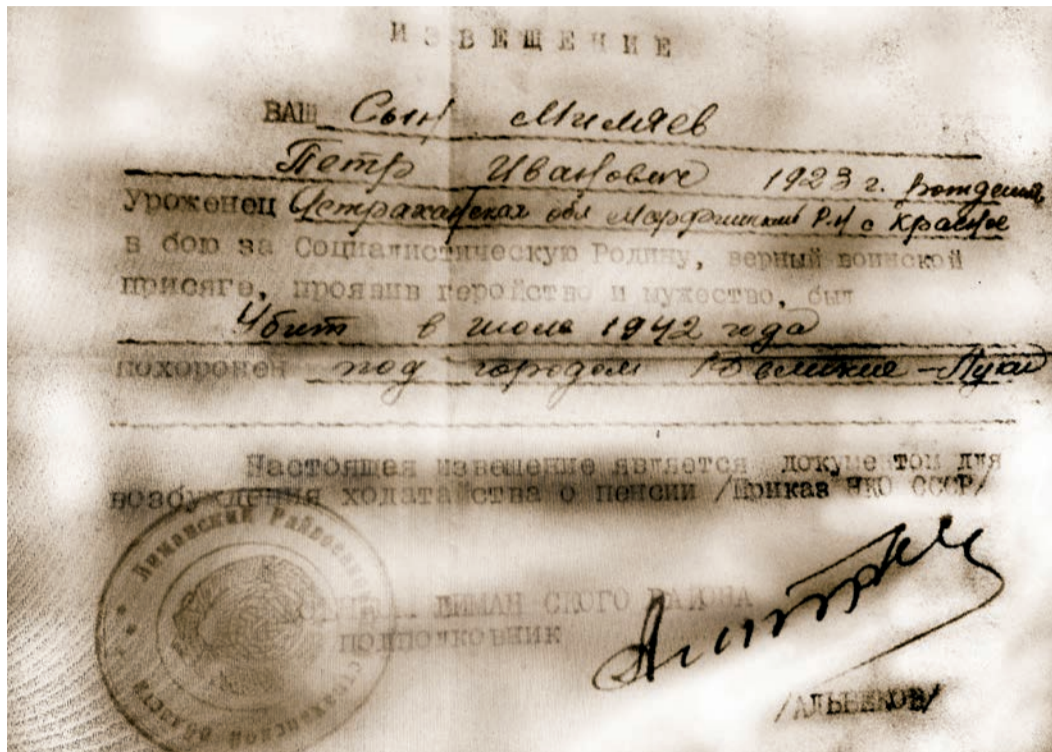 ИЗВЕЩЕНИЕ
ВАШ Сын Мимяев
Петр Иванович 1923 г. рождения,
Уроженец Астраханская обл Марфинский Р.Н с Красное
в бою за Социалистическую Родину, верный воинской
присяге, проявив геройство и мужество, был
Убит в июле 1942 года
похоронен под городом Великие-Луки
Настоящая извещение является докуме том для
возбуждения ходатайства о пенсии /Приказ НКО СССР/
Лиманский Райвоенко
ЛИМАН СКОГО РАЙОНА
ПОДПОЛКОВНИК
области
/АЛЬБЕКОВ/